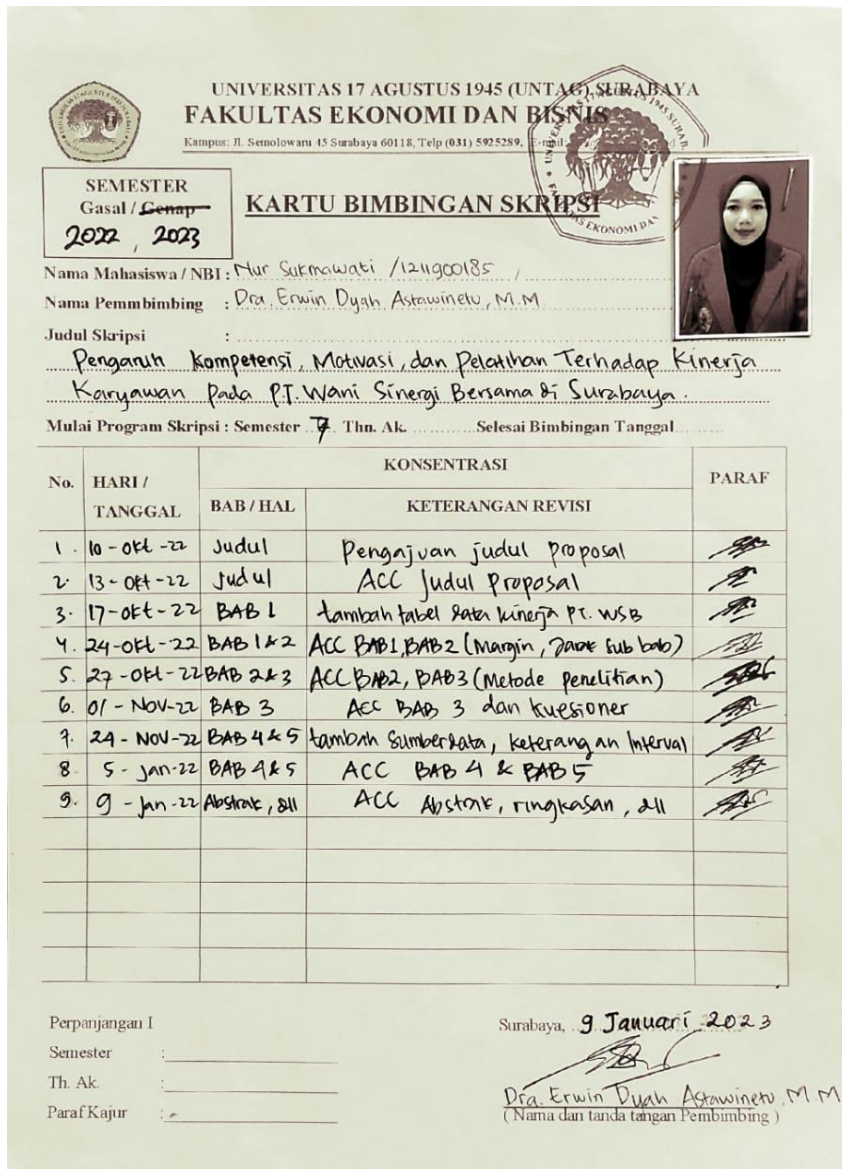 UNIVERSITAS 17 AGUSTUS 1945 (UNTAG) SURABAYA
FAKULTAS EKONOMI DAN BISNIS
Kampus: Jl. Semolowaru 45 Surabaya 60118, Telp (031) 5925289, E-mail
SEMESTER
Gasal / Genap
2022, 2023
KARTU BIMBINGAN SKRIPSI
Nama Mahasiswa / NBI : Nur Sukmawati / 1211900185
Nama Pemmbimbing : Dra. Erwin Dyah Astawinetu, M.M
Judul Skripsi :
Pengaruh Kompetensi, Motivasi, dan Pelatihan Terhadap Kinerja
Karyawan Pada PT. Wani Sinergi Bersama di Surabaya.
Mulai Program Skripsi : Semester 7 Thn. Ak. Selesai Bimbingan Tanggal
No. HARI / TANGGAL KONSENTRASI PARAF
BAB / HAL KETERANGAN REVISI
1. 10 - Okt - 22 Judul Pengajuan judul proposal
2. 13 - Okt - 22 Judul ACC Judul Proposal
3. 17 - Okt - 22 BAB 1 tambah tabel data kinerja PT. WSB
4. 24 - Okt - 22 BAB 1 & 2 ACC BAB 1, BAB 2 (Margin, Jarak sub bab)
5. 27 - Okt - 22 BAB 2 & 3 ACC BAB 2, BAB 3 (Metode penelitian)
6. 01 - Nov - 22 BAB 3 ACC BAB 3 dan kuesioner
7. 24 - Nov - 22 BAB 4 & 5 tambah Sumber data, keterangan Interval
8. 5 - Jan - 22 BAB 4 & 5 ACC BAB 4 & BAB 5
9. 9 - Jan - 22 Abstrak, dll ACC Abstrak, ringkasan, dll
Perpanjangan I
Semester :
Th. Ak. :
Paraf Kajur :
Surabaya, 9 Januari 2023
Dra. Erwin Dyah Astawinetu, M.M
( Nama dan tanda tangan Pembimbing )